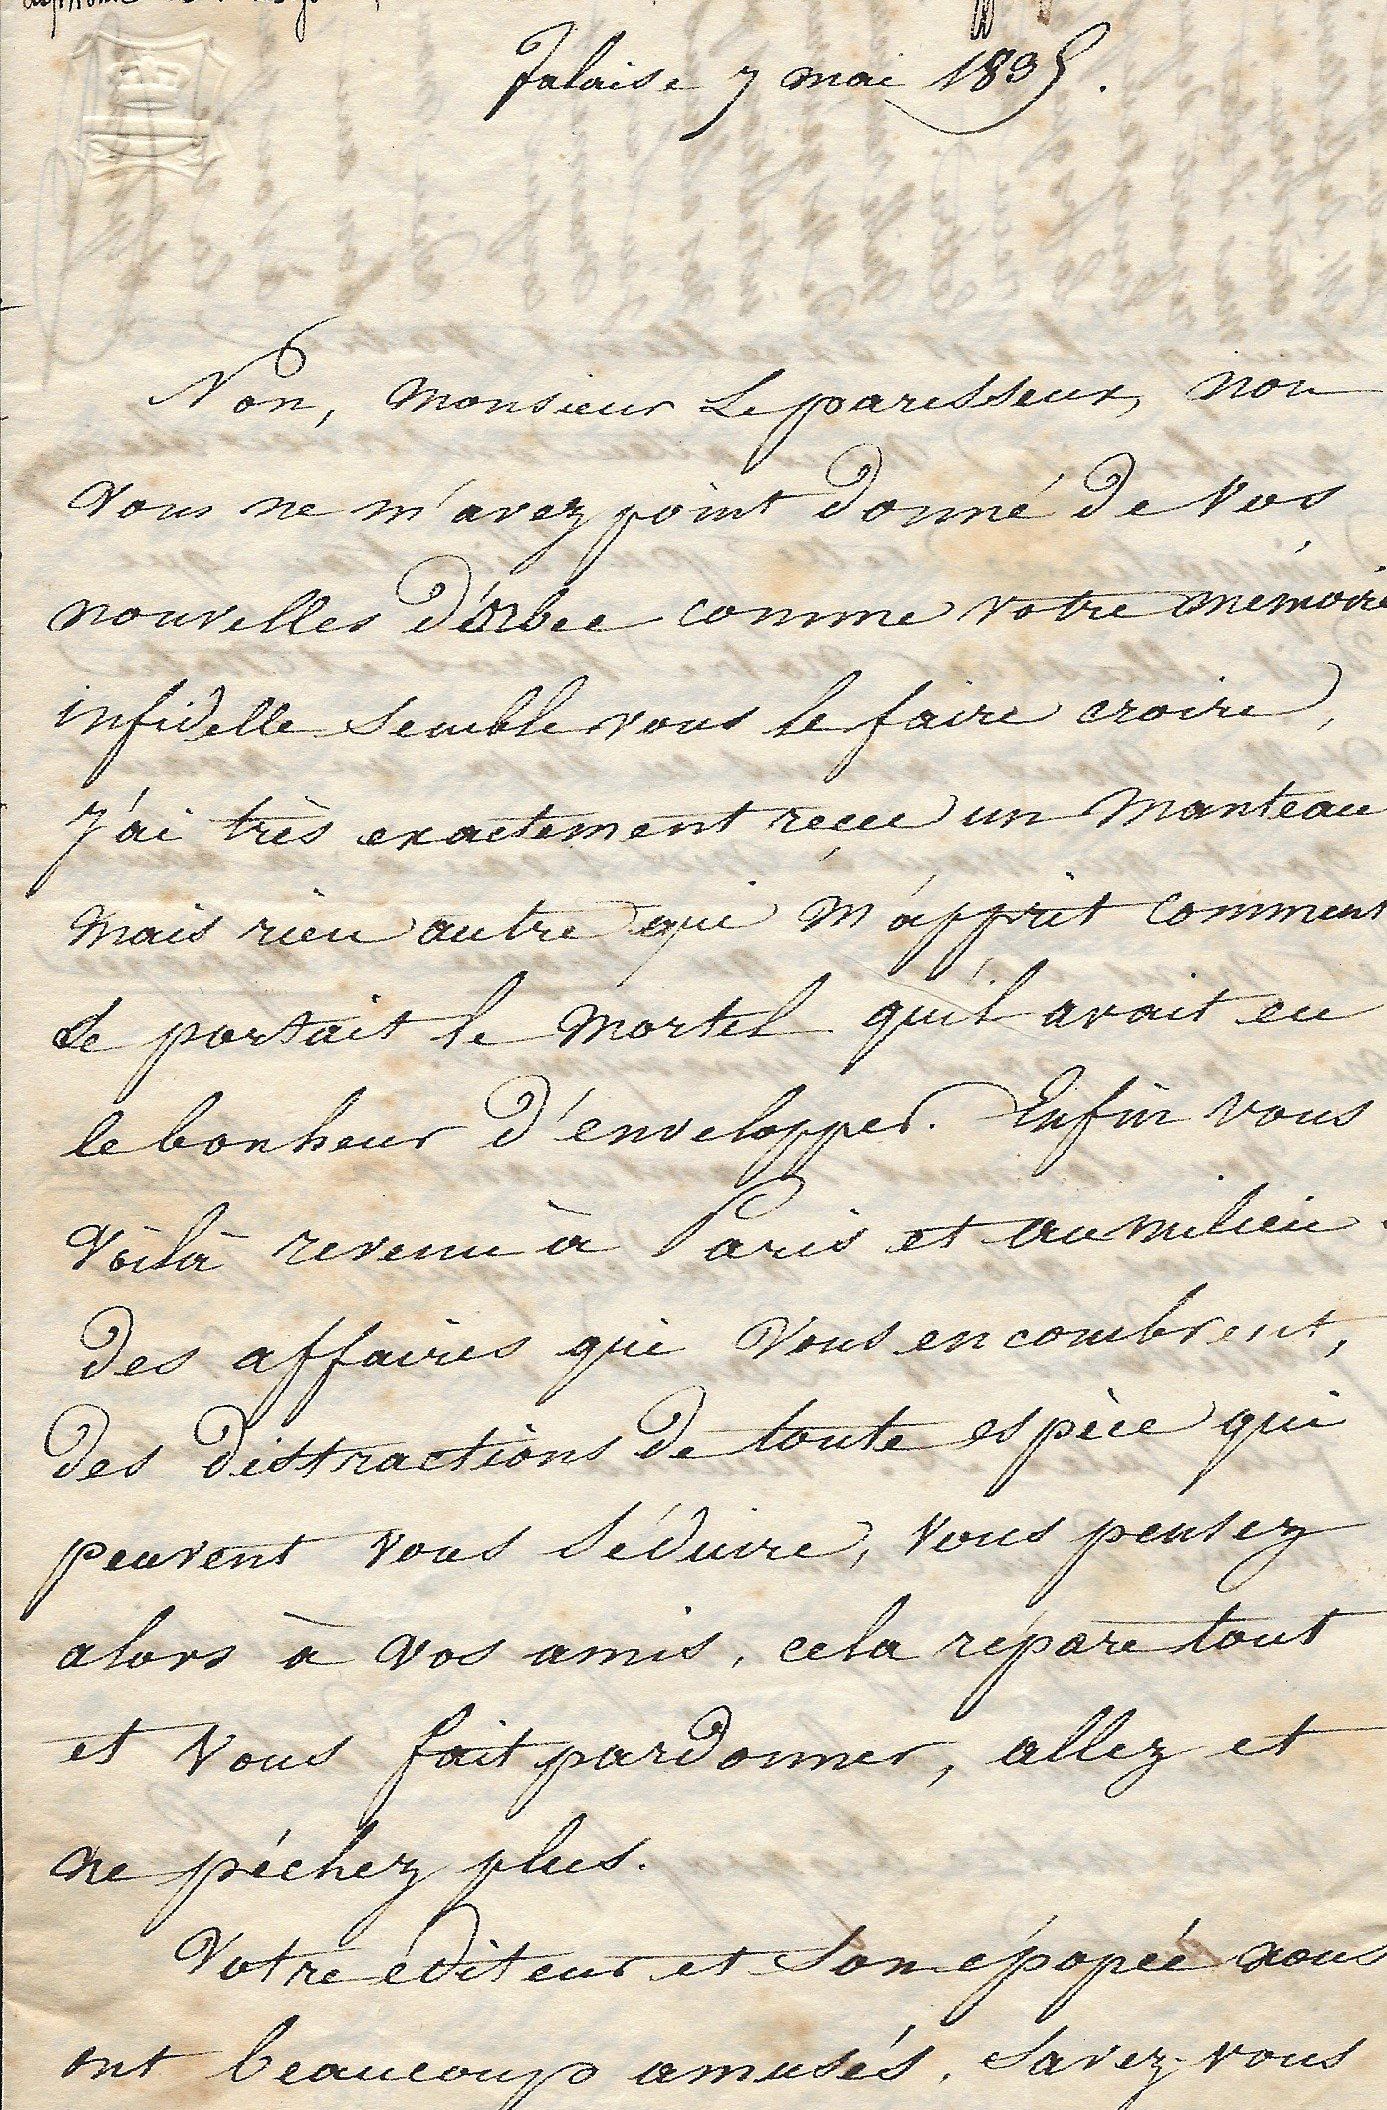 falaise 7 mai 1835.
Non, monsieur le paresseux, non
vous ne m'avez point donné de vos
nouvelles d'orbec comme votre mémoire
infidelle semble vous le faire croire,
j'ai très exactement reçue un manteau
mais rien autre qui m'apprit comment
se portait le mortel qu'il avait eu
le bonheur d'envelopper. Enfin vous
voilà revenu à Paris et au milieu
des affaires qui vous encombrent,
des distractions de toute espèce qui
peuvent vous séduire, vous pensez
alors à vos amis, cela répare tout
et vous fait pardonner, allez et
ne péchez plus.
Votre éditeur et son épopée nous
ont beaucoup amusés. Savez-vous